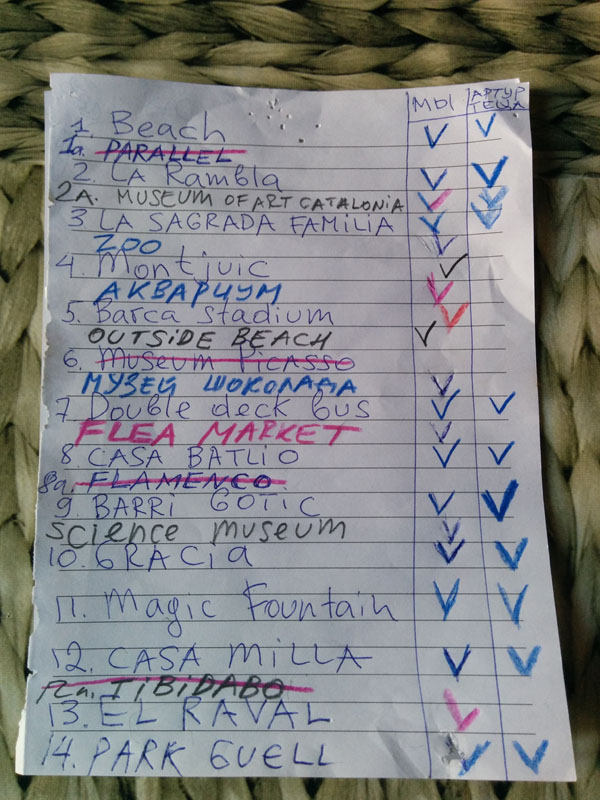 МЫ АРТУР
ТЕЩА
1. Beach ✓ ✓
1a. PARALLEL
2. LA Rambla ✓ ✓
2A. MUSEUM OF ART CATALONIA ✓ ✓
3. LA SAGRADA FAMILIA ✓ ✓
ZOO ✓
4. Montjuic ✓
АКВАРИУМ ✓
5. Barca stadium ✓
OUTSIDE BEACH ✓
6. Museum Picasso
МУЗЕЙ ШОКОЛАДА ✓
7. Double deck bus ✓ ✓
FLEA MARKET ✓
8. CASA BATLIO ✓ ✓
8a. FLAMENCO
9. BARRI GOTIC ✓ ✓
Science museum ✓
10. GRACIA ✓ ✓
11. Magic Fountain ✓ ✓
12. CASA MILLA ✓ ✓
12a. TIBIDABO
13. EL RAVAL ✓
14. PARK GUELL ✓ ✓